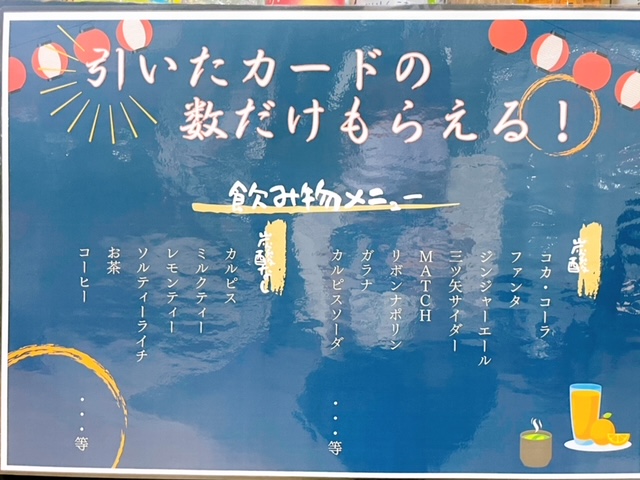 引いたカードの
数だけもらえる！
飲み物メニュー
炭酸
コカ・コーラ
ファンタ
ジンジャーエール
三ツ矢サイダー
MATCH
リボンナポリン
ガラナ
カルピスソーダ
・・・等
炭酸なし
カルピス
ミルクティー
レモンティー
ソルティーライチ
お茶
コーヒー
・・・等